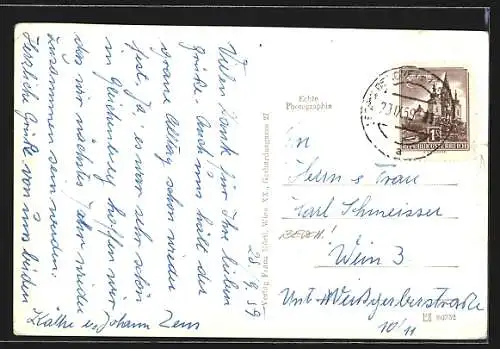 25/9 59
Vielen Dank für Ihre lieben
Grüße. Auch uns hält der
graue Alltag schon wieder
fest. Ja, es war sehr schön
in Gleichenberg, hoffen wir
das wir nächstes Jahr wieder
zusammen sein werden.
Herzliche Grüße von uns beiden
Käthe u. Johann Zens
Echte
Photographie
Verlag Franz Mörtl, Wien, XX., Gerhardusgasse 27
23.IX.59
1S
REPUBLIK ÖSTERREICH
An
Herrn u Frau
Karl Schmeisser
Wien 3.
Unt. Weißgerberstraße
10/11